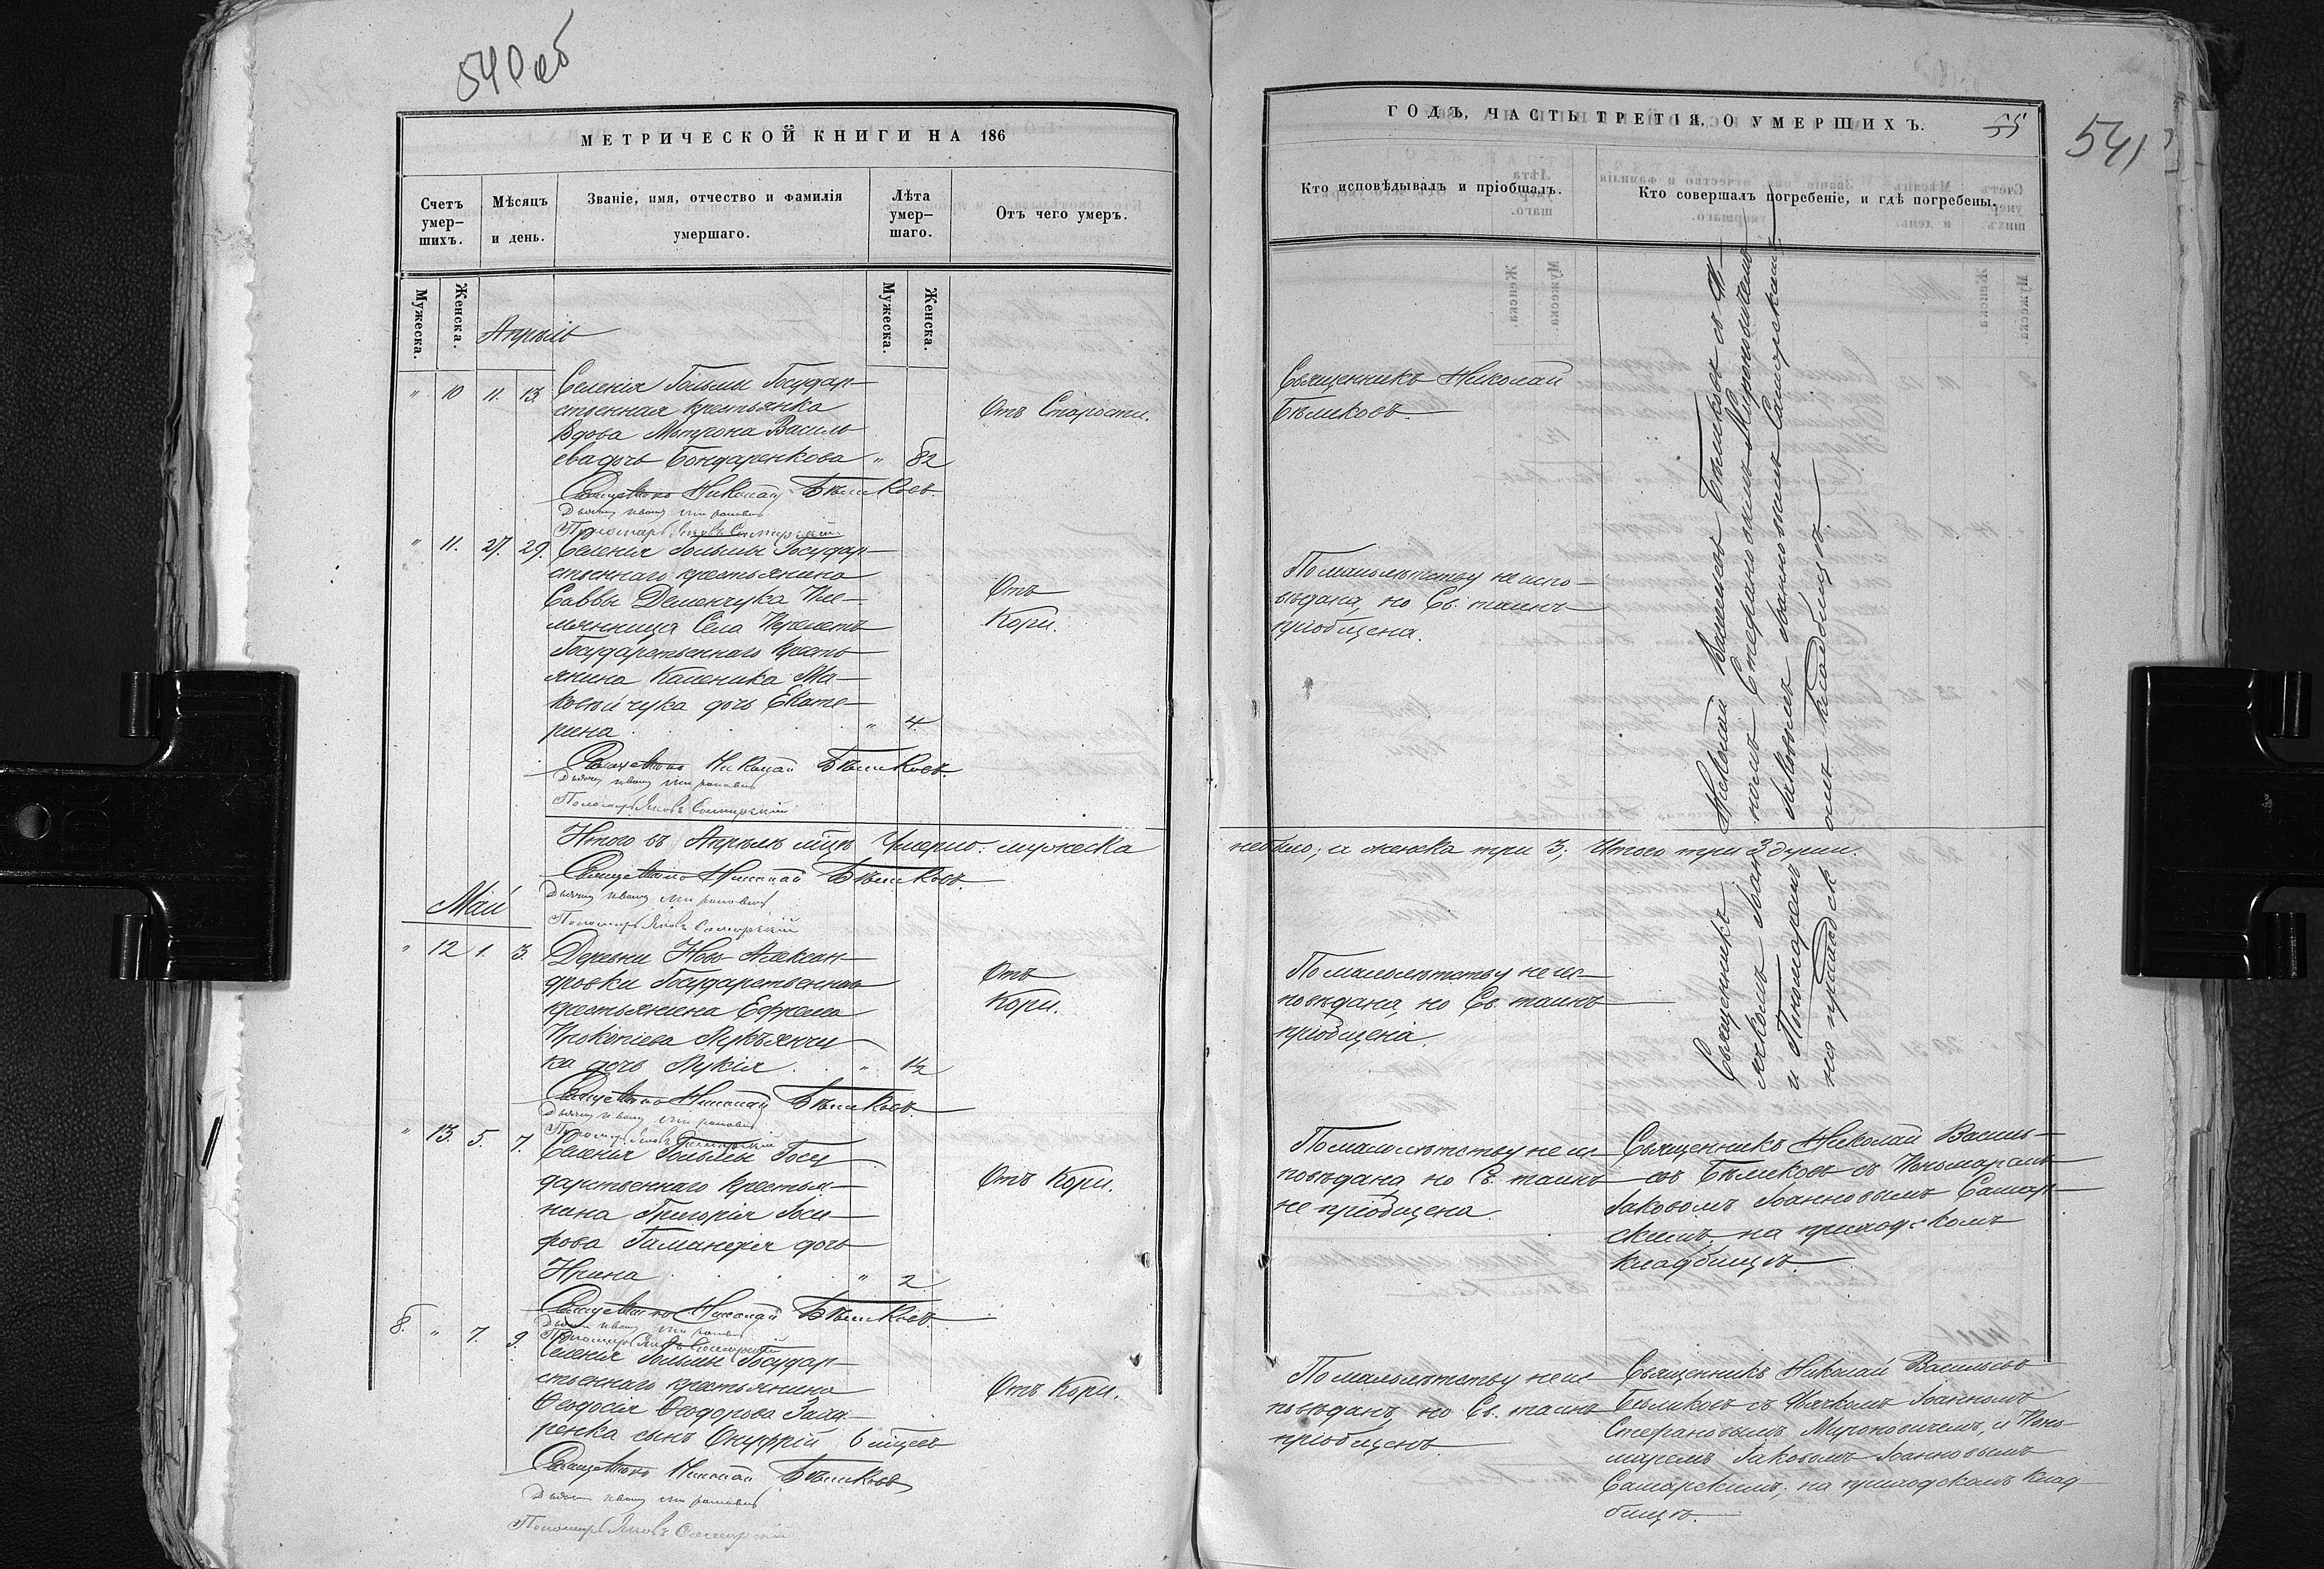 540 об
МЕТРИЧЕСКОЙ КНИГИ НА 186
Счетъ умер-шихъ.
Мѣсяцъ и день.
Званіе, имя, отчество и фамилія умершаго.
Лѣта умер-шаго.
Отъ чего умеръ.
Мужеска.
Женска.
Мужеска.
Женска.
Апрѣль
" 10 11. 13. Селенія Гольмы Государ-
ственная крестьянка
Вдова Матрона Василь
ева дочь Бондаренкова " 82
Отъ Старости.
Священникъ Николай Бѣликовъ.
Дьячекъ Иванъ Мироновичъ
Пономарь Яковъ Самарскій
" 11. 27. 29. Селенія Гольмы Государ-
ственнаго крестьянина
Саввы Деменчука Пле-
мянница Села Перелетъ
Государственнаго Кресть
янина Каленика Ма-
ковійчука дочь Екате-
рина " 4.
Отъ
Кори.
Священникъ Николай Бѣликовъ.
Дьячекъ Иванъ Мироновичъ
Пономарь Яковъ Самарскій
Итого въ Апрѣлѣ мцѣ Умерло: мужеска
Священникъ Николай Бѣликовъ.
Дьячекъ Иванъ Мироновичъ
Пономарь Яковъ Самарскій
Май
" 12 1. 3. Деревни Ново-Алексан-
дровки Государственнаго
крестьянина Ефрема
Прокопіева Лукъянчи
ка дочь Лукія " 1½
Отъ
Кори.
Священникъ Николай Бѣликовъ.
Дьячекъ Иванъ Мироновичъ
Пономарь Яковъ Самарскій
" 13. 5. 7. Селенія Гольмы Госу
дарственнаго крестья-
нина Григорія Іоси
фова дочь
Ирина " 2
Отъ Кори.
Священникъ Николай Бѣликовъ.
Дьячекъ Иванъ Мироновичъ
Пономарь Яковъ Самарскій
8. " 7. 9. Селенія Гольмы Государ-
ственнаго крестьянина
Ѳеодосія Ѳеодорова Заха-
ренка сынъ Онуфрій 6 мцевъ
Отъ Кори.
Священникъ Николай Бѣликовъ
Дьячекъ Иванъ Мироновичъ
Пономарь Яковъ Самарскій
ГОДЪ, ЧАСТЬ ТРЕТІЯ, О УМЕРШИХЪ.
55
541
Кто исповѣдывалъ и пріобщалъ.
Кто совершалъ погребеніе, и гдѣ погребены.
Священникъ Николай
Бѣликовъ.
По малолѣтству не испо-
вѣдана, но Св. таинъ
пріобщена.
не было; а женска три 3; Итого три 3 души.
По малолѣтству не ис-
повѣдана, но Св. таинъ
пріобщена.
Священникъ Николай Васильевъ Бѣликовъ съ Дь-
ячкомъ Іоанномъ Стефановымъ Мироновичемъ
и Пономаремъ Іаковомъ Іоанновымъ Самарскимъ,
на приходскомъ кладбищѣ.
По малолѣтству не ис
повѣдана, но Св. таинъ
не пріобщена.
Священникъ Николай Василь-
евъ Бѣликовъ съ Пономаремъ
Іаковомъ Іоанновымъ Самар-
скимъ, на приходскомъ
кладбищѣ.
По малолѣтству не ис
повѣданъ, но Св. таинъ
пріобщенъ
Священникъ Николай Васильевъ
Бѣликовъ съ Дьячкомъ Іоанномъ
Стефановымъ Мироновичемъ, и Поно-
маремъ Іаковомъ Іоанновымъ
Самарскимъ; на приходскомъ клад
бищѣ.